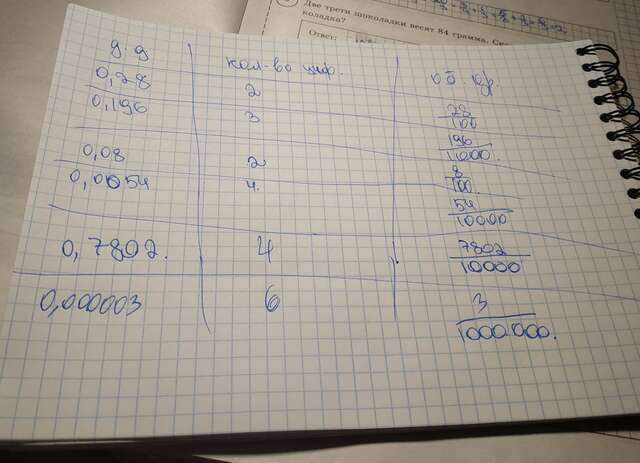 Две трети шоколадки весят 84 грамма.
коладка?
Ответ:
д.д кол-во циф. об. др
0,28 2 28/100
0,196 3 196/1000.
0,08 2 8/100.
0,0054 4. 54/10000
0,7802. 4 7802/10000
0,000003 6 3/1000.000.